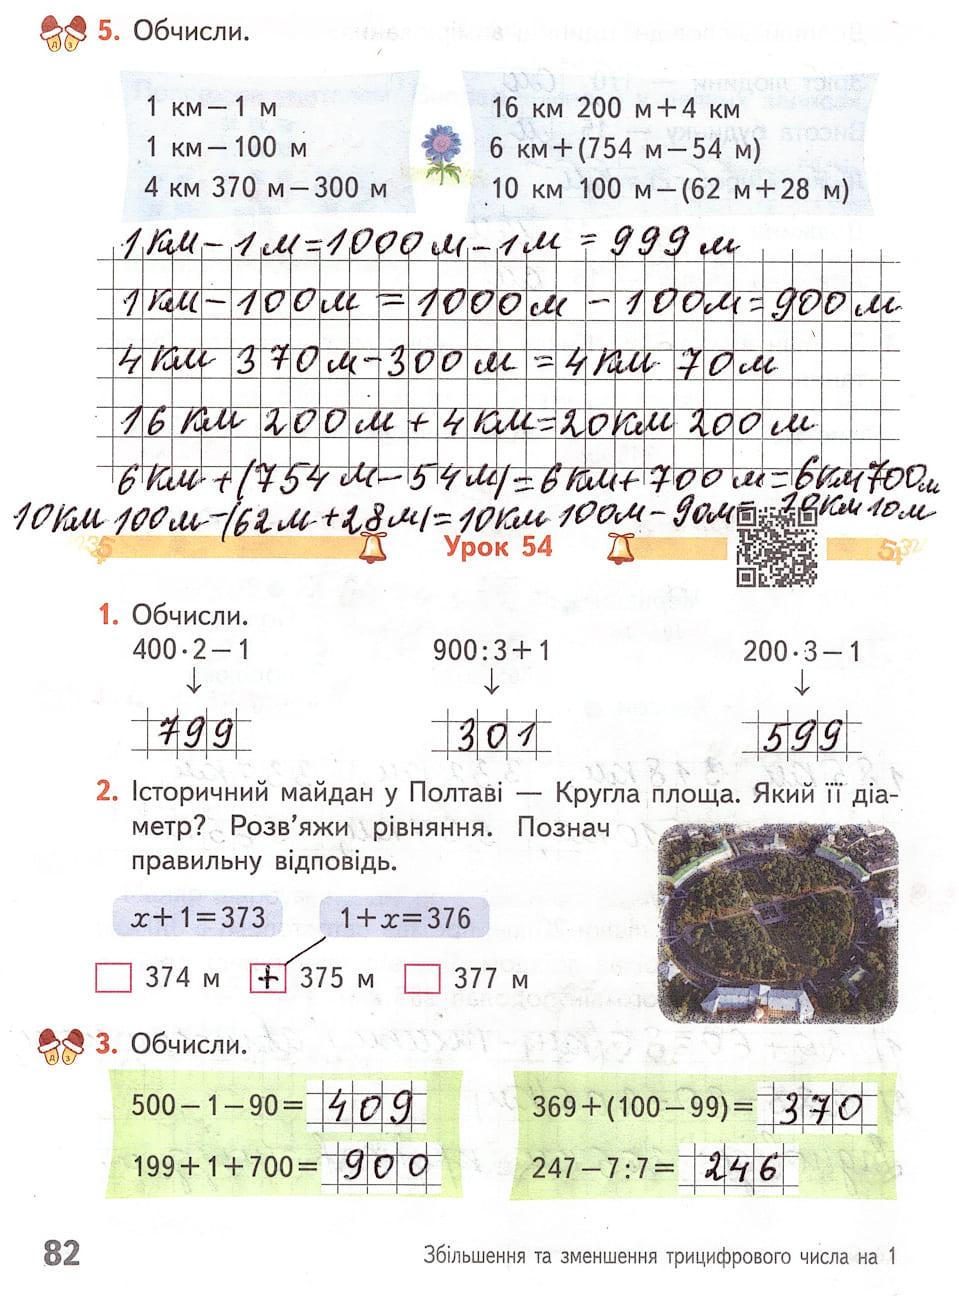 5. Обчисли.
1 км – 1 м
1 км – 100 м
4 км 370 м – 300 м
16 км 200 м + 4 км
6 км + (754 м – 54 м)
10 км 100 м – (62 м + 28 м)
1 км – 1 м = 1000 м – 1 м = 999 м
1 км – 100 м = 1000 м – 100 м = 900 м
4 км 370 м – 300 м = 4 км 70 м
16 км 200 м + 4 км = 20 км 200 м
6 км + (754 м – 54 м) = 6 км + 700 м = 6 км 700 м
10 км 100 м – (62 м + 28 м) = 10 км 100 м – 90 м = 10 км 10 м
Урок 54
1. Обчисли.
400 · 2 – 1
900 : 3 + 1
200 · 3 – 1
799
301
599
2. Історичний майдан у Полтаві — Кругла площа. Який її діа-
метр? Розв’яжи рівняння. Познач
правильну відповідь.
x + 1 = 373
1 + x = 376
374 м
+ 375 м
377 м
3. Обчисли.
500 – 1 – 90 = 409
199 + 1 + 700 = 900
369 + (100 – 99) = 370
247 – 7 : 7 = 246
82
Збільшення та зменшення трицифрового числа на 1